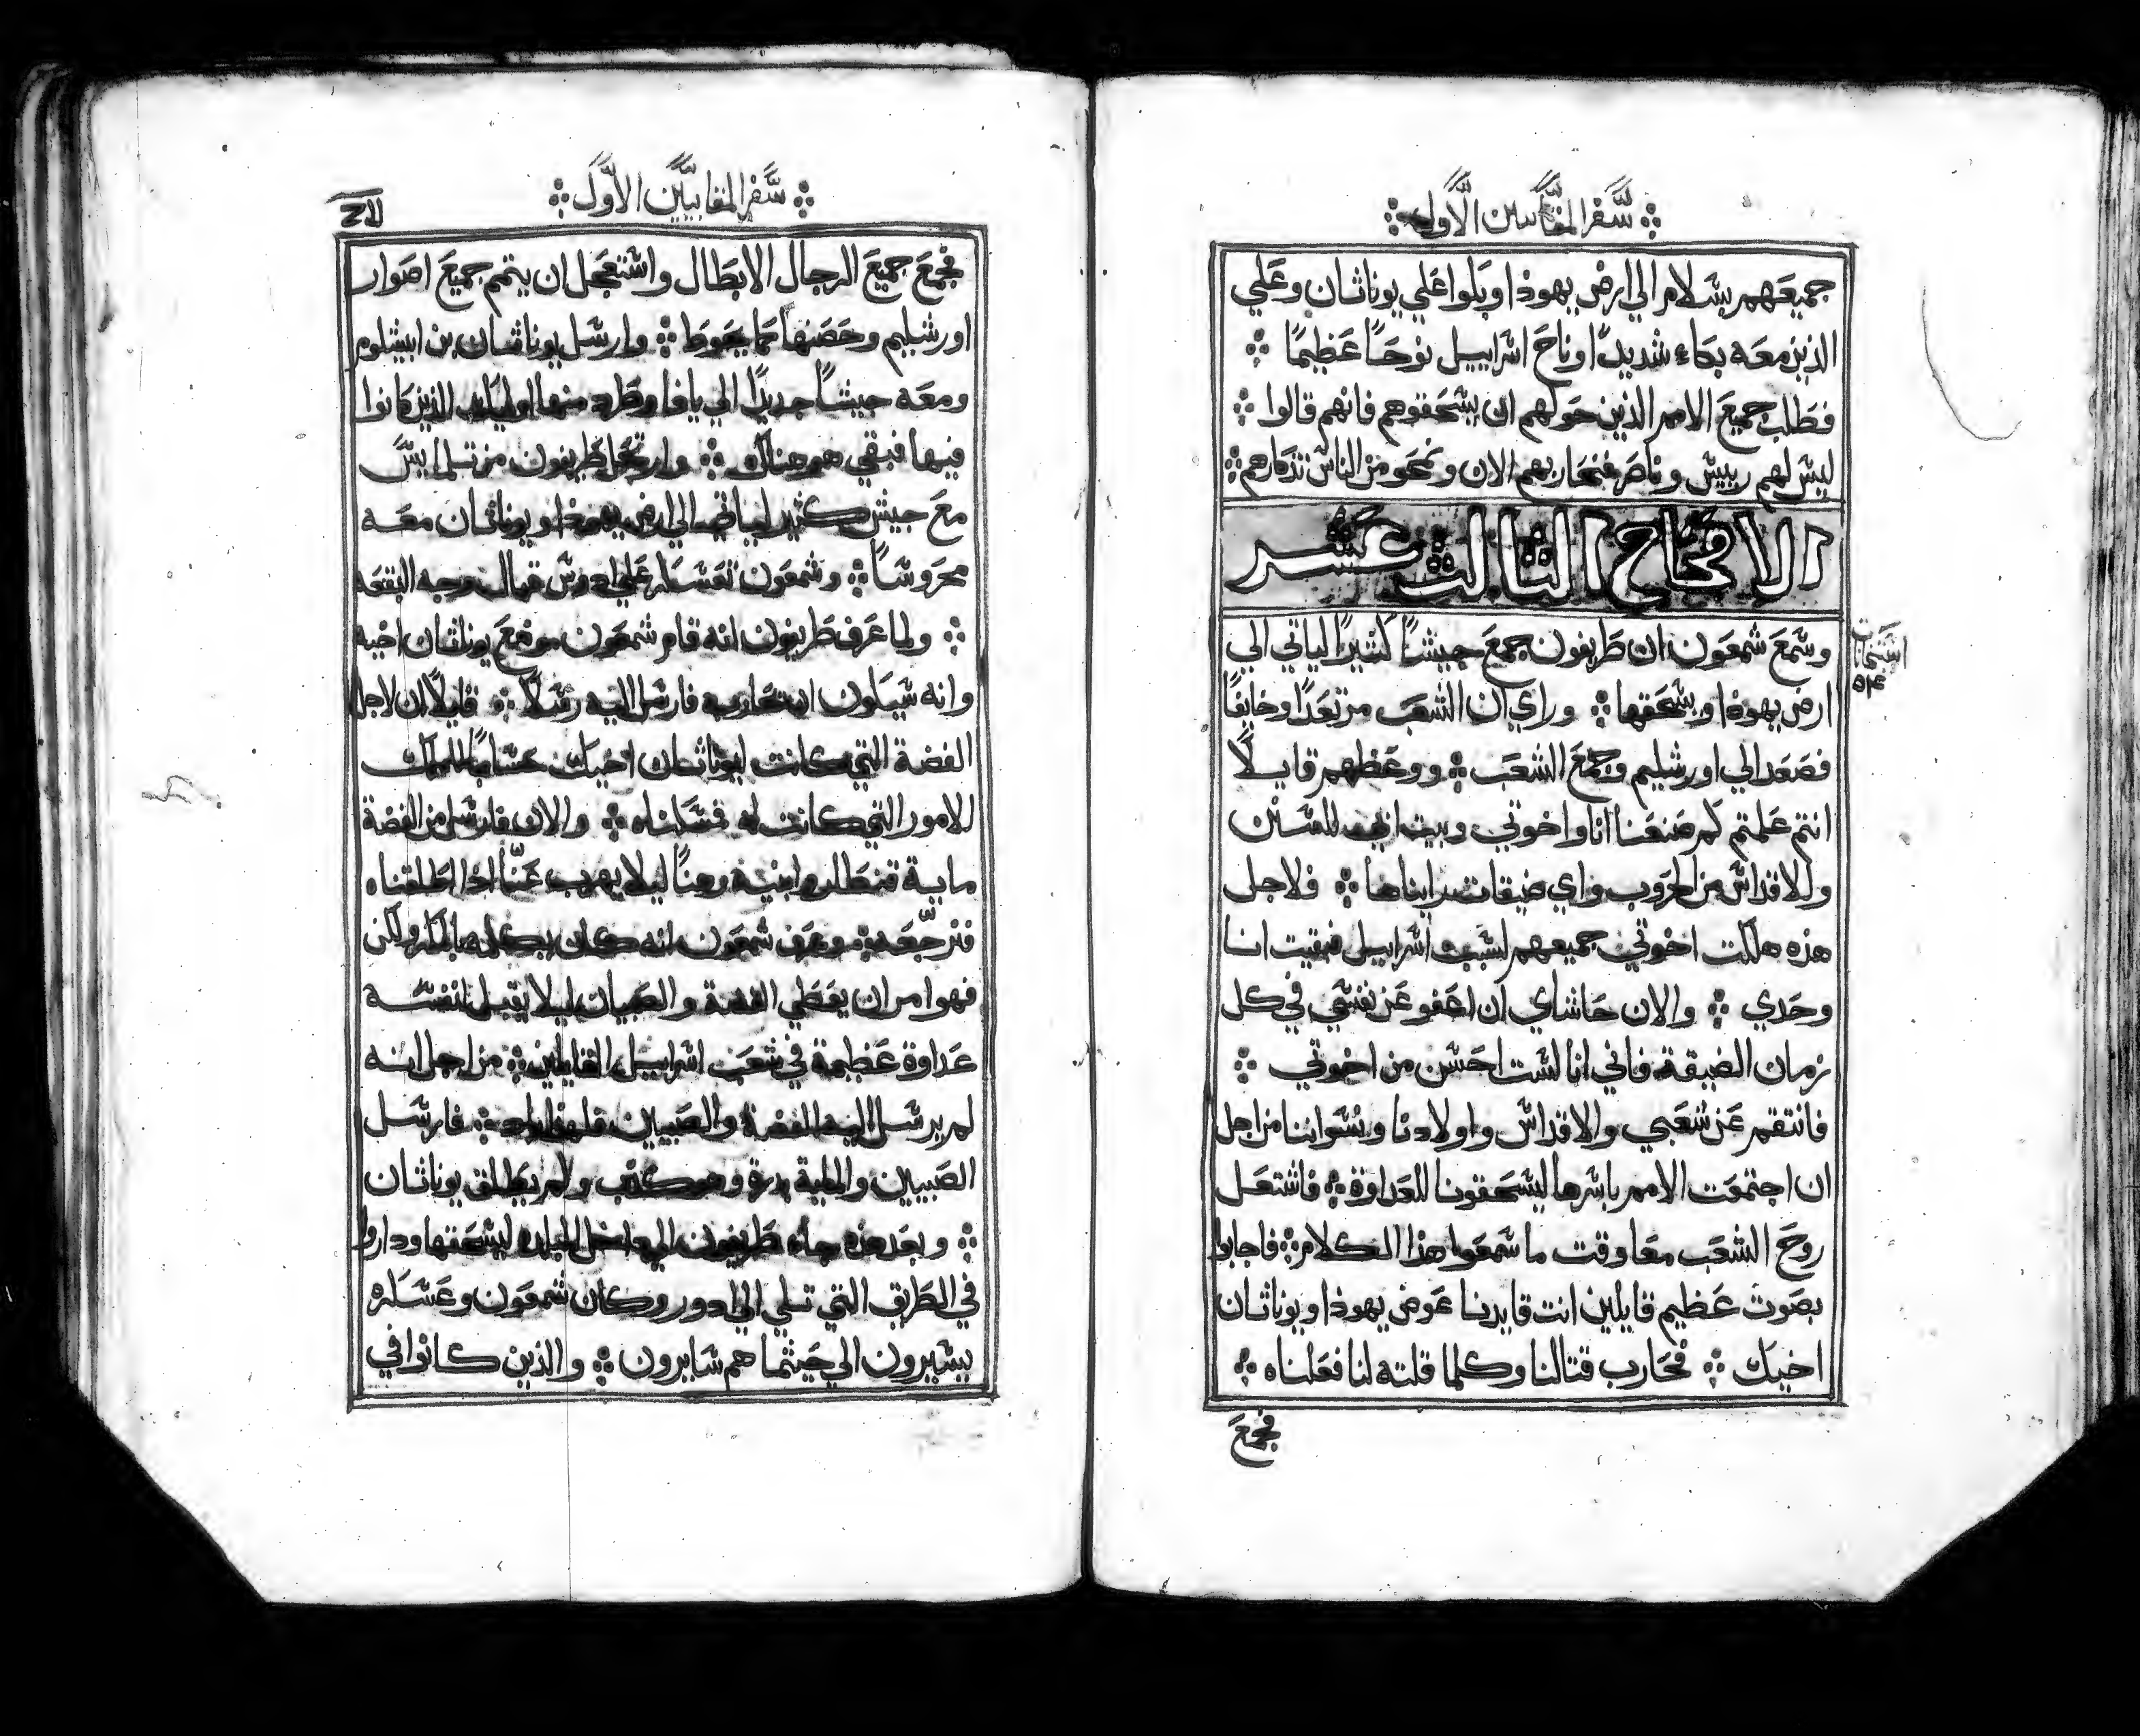 سفر المقابيين الاول
جميعهم بسلام الي ارض يهوذا وبكوا علي يوناثان وعلي
الذين معه بكاء شديدًا وناح اسراييل نوحًا عظيمًا
فطلب جميع الامم الذين حولهم ان يسحقوهم فانهم قالوا
ليس لهم رييس وناصر فنحاربهم الان ونمحو من الناس تذكارهم
الافتتاح الثالث عشر
وسمع شمعون ان طريفون جمع جيشًا كثيرًا لياتي الي
ارض يهوذا ويسحقها وراي ان الشعب مرتعدًا وخايفًا
فصعد الي اورشليم وجمع الشعب ووعظهم قايلًا
انتم علمتم كم صنعنا انا واخوتي وبيت ابي للسنن
وللاقداس من الحروب واي ضيقات رايناها فلاجل
هذه هلكت اخوتي جميعهم لسبب اسراييل فبقيت انا
وحدي والان حاشاي ان اعفو عن نفسي في كل
زمان الضيقة فاني انا لست احسن من اخوتي
فانتقم عن شعبي والاقداس واولادنا ونسواننا من اجل
ان اجتمعت الامم باسرها ليسحقونا للعداوة فاشتعل
روح الشعب معا وقت ما سمعوا هذا الكلام فاجابوا
بصوت عظيم قايلين انت قايدنا عوض يهوذا ويوناثان
اخيك فحارب قتالنا وكلما قلته لنا فعلناه
فجمع
سفر المقابيين الاول
فجمع جميع الرجال الابطال واستعجل ان يتمم جميع اصوار
اورشليم وحصنها كما يحوط وارسل يوناثان بن ابيشلوم
ومعه جيشًا جديدًا الي يافا وطرد منها اوليك الذين كانوا
فيها فبقي هو هناك وارتحل طريفون من تلمايس
مع جيش كثير لياتي الي ارض يهوذا ويوناثان معه
محروسًا وشمعون تعسكر علي ادوس قبال وجه البقعه
ولما عرف طريفون انه قام شمعون موضع يوناثان اخيه
وانه سيكون ان يحاربه فارسل اليه رسلًا قايلًا ان لاجل
الفضة التي كانت ليوناثان اخيك حسابًا للملك
للامور التي كانت له فمسكناه والان فارسل من الفضة
ماية قنطار وابنيه رهنًا ليلا يهرب عنّا اذا اطلقناه
فنرجّعه وعرف شمعون انه كان يكلمه بالمكر ولكن
فهو امر ان يعطي الفضة والصبيان ليلا يقبل لنفسه
عداوة عظيمة في شعب اسراييل القايلين من اجل انه
لم يرسل اليه الفضة والصبيين فلهذا باد فارسل
الصبيين والماية بدرة وهو كذب ولم يطلق يوناثان
وبعد هذه جاء طريفون الي داخل البلده ليسحقها وداروا
في الطريق التي تلي الي ادور وكان شمعون وعسكره
يسيرون الي حيثما هم سايرون والذين كانوا في